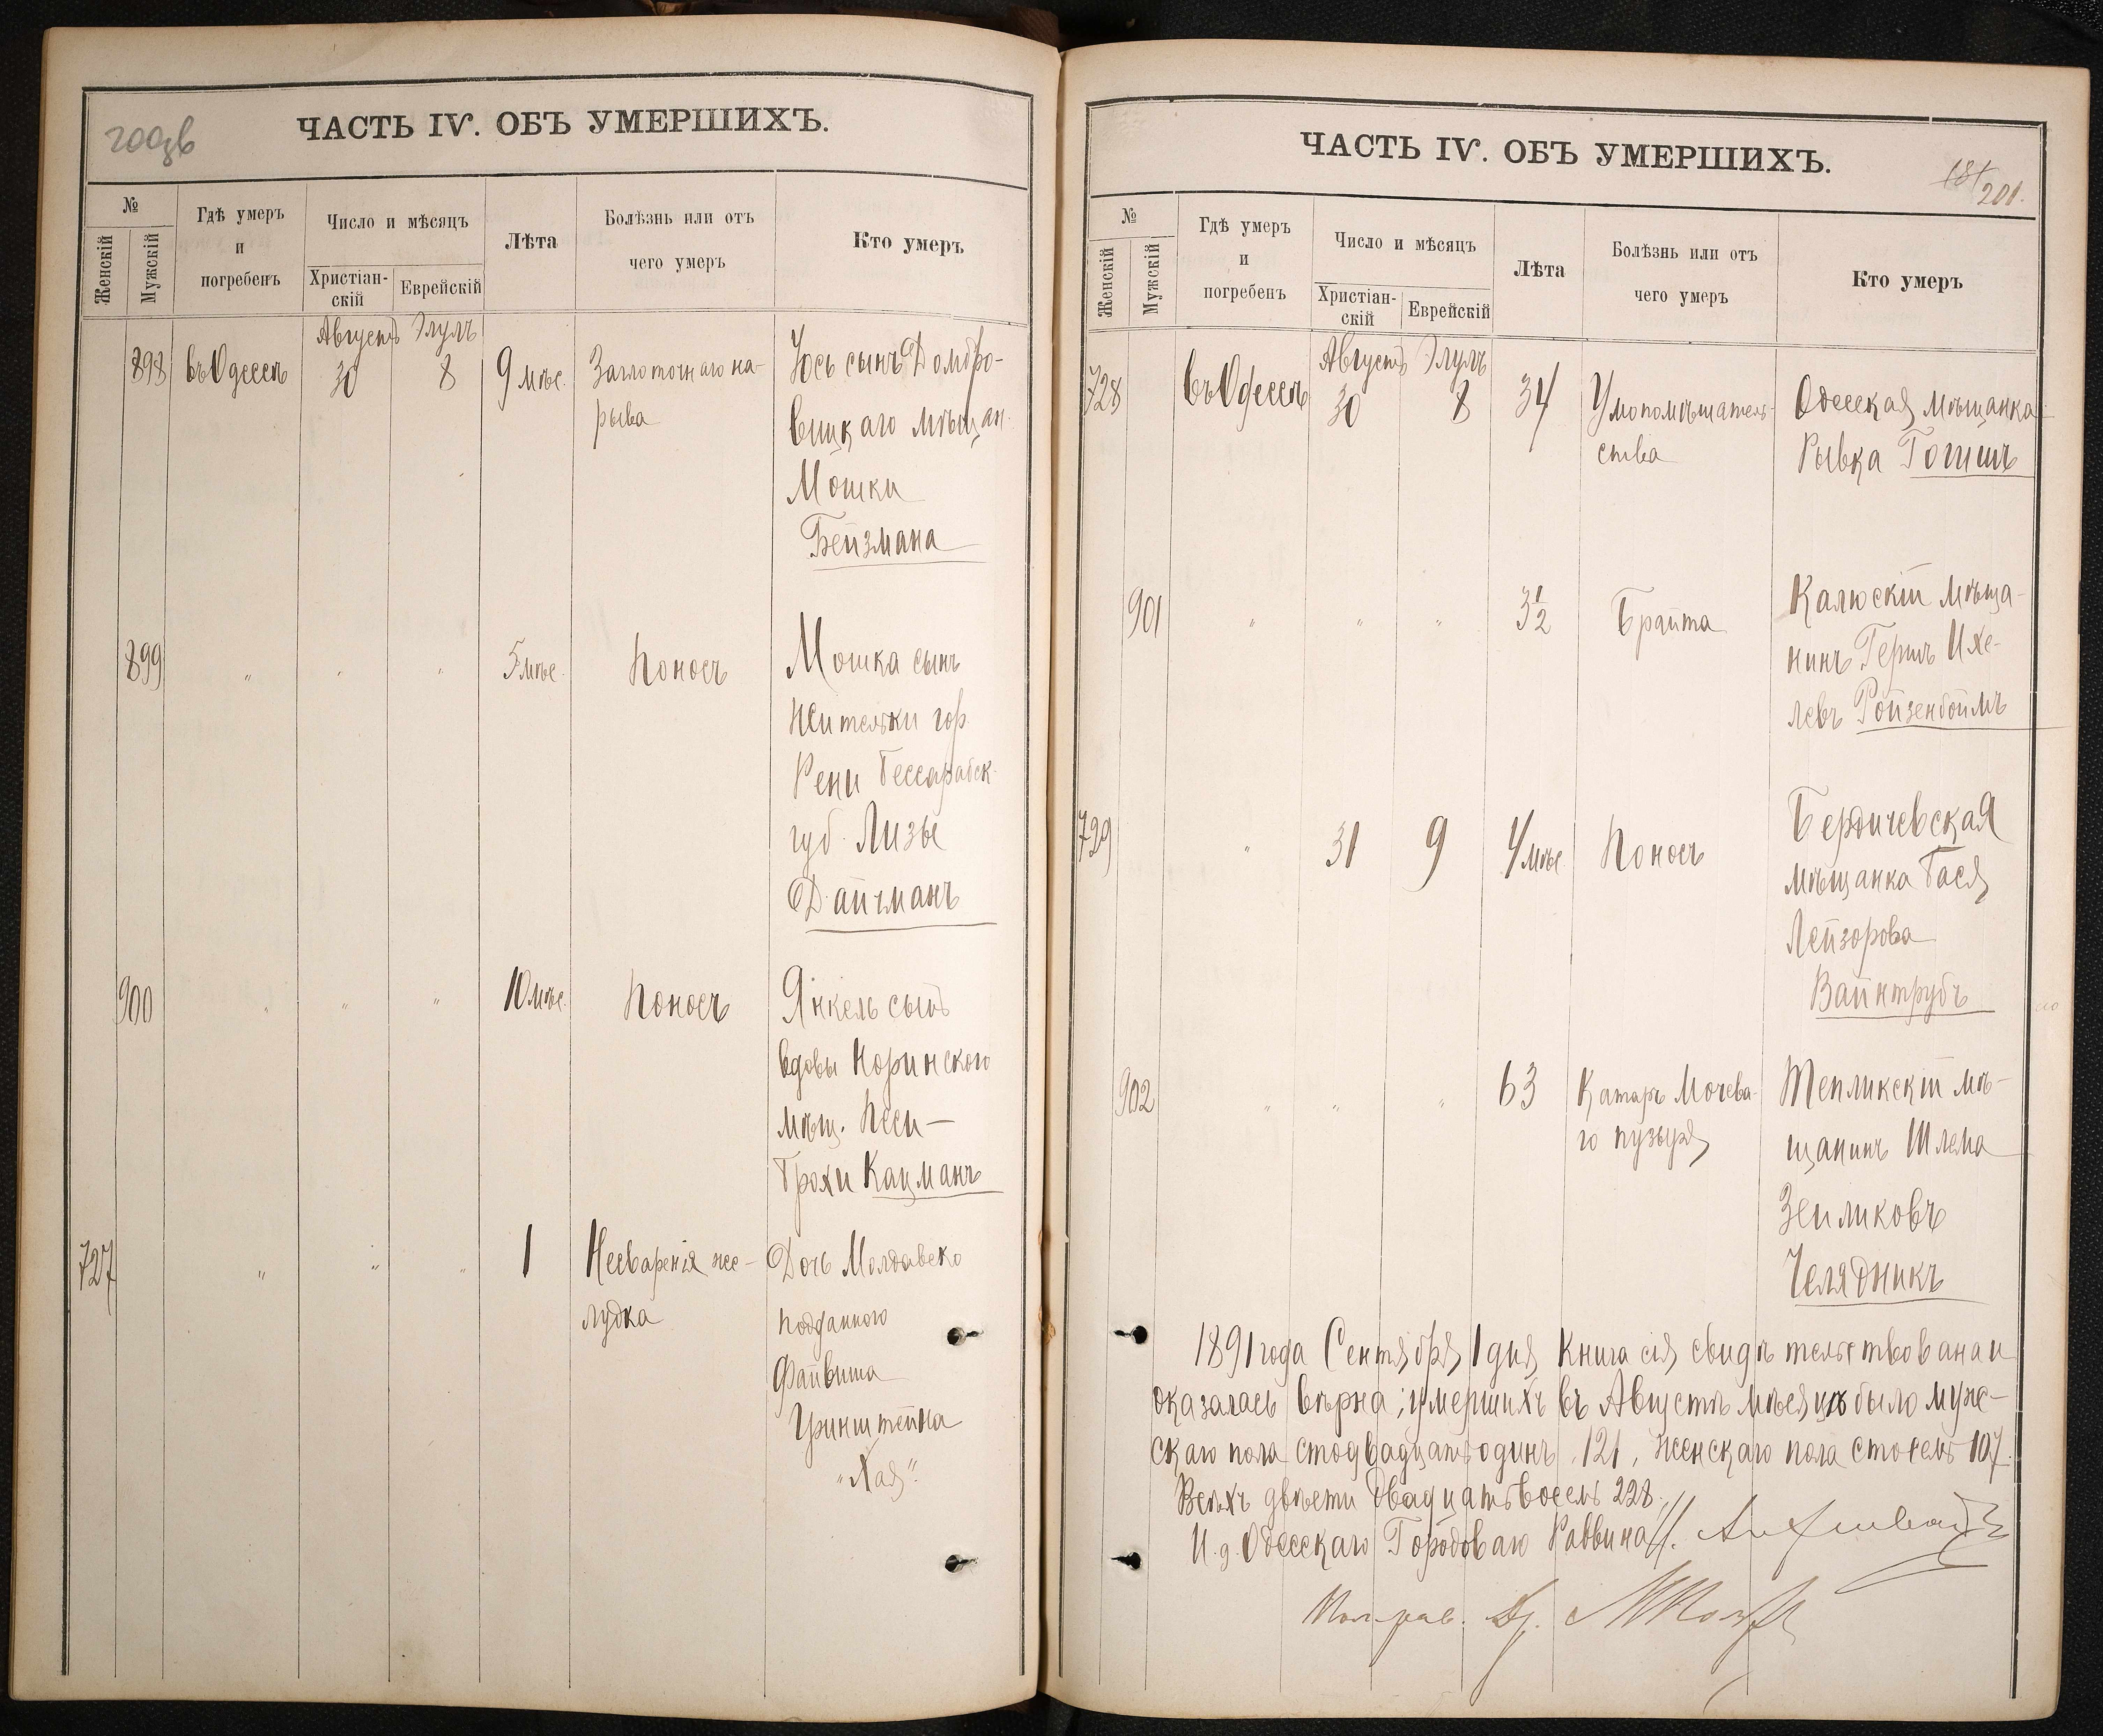 200дв
ЧАСТЬ IV. ОБЪ УМЕРШИХЪ.
№
Женскій
Мужскій
Гдѣ умеръ
и
погребенъ
Число и мѣсяцъ
Христіан-
скій
Еврейскій
Лѣта
Болѣзнь или отъ
чего умеръ
Кто умеръ
Августъ Элулъ
898 въ Одессѣ 30 8 9 мѣс. Заглоточнаго на- Іось сынъ Домбро-
рыва вицкаго мѣщан.
Мошки
Бейзмана
899 " " " 5 мѣс. Поносъ Мошка сынъ
жительки гор.
Рени Бессарабск.
губ. Лизы
Дайчманъ
900 " " " 10 мѣс. Поносъ Янкель сынъ
вдовы Норинского
мѣщ. Неси-
Брохи Кацманъ
727 " " " 1 Несваренія же- Дочь Молдавско
лудка подданного
Файвиша
Гринштейна
"Хая".
ЧАСТЬ IV. ОБЪ УМЕРШИХЪ.
181/201.
№
Женскій
Мужскій
Гдѣ умеръ
и
погребенъ
Число и мѣсяцъ
Христіан-
скій
Еврейскій
Лѣта
Болѣзнь или отъ
чего умеръ
Кто умеръ
Августъ Элулъ
728 въ Одессѣ 30 8 34 Умопомѣшатель- Одесская мѣщанка
ства Рывка Гогишъ
901 " " " 3 1/2 Брайта Калюскій мѣща-
нинъ Гершъ Ихе-
левъ Ройзенбоймъ
729 " 31 9 4 мѣс. Поносъ Бердичевская
мѣщанка Бася
Лейзорова
Вайнтрубъ
902 " " " 63 Катаръ Мочева- Тепликскій мѣ-
го пузыря щанинъ Шлема
Зейликовъ
Челядникъ
1891 года Сентября 1 дня Книга сія свидѣтельствована и
оказалась вѣрна; умершихъ въ Августѣ мѣсяцѣ было муже-
скаго пола сто двадцать одинъ 121, женскаго пола сто семь 107.
Всѣхъ двѣсти двадцать восемь 228.
И. д. Одесскаго Городоваго Раввина